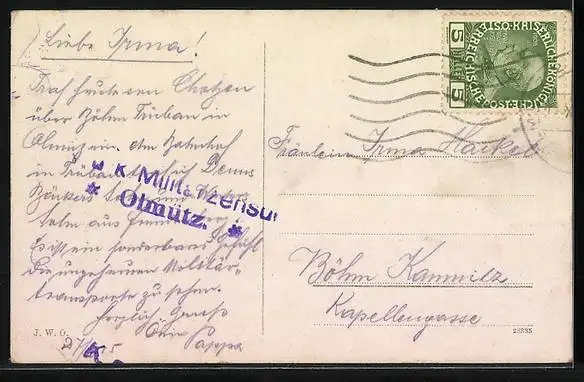 Liebe Irma!
Traf heute von Chotzen
über Böhm Trübau in
Olmütz ein. Am Bahnhof
in Trübau sich
Bäckers
aus
Es ist ein sonderbares Gefühl
die ungeheuren Militär-
transporte zu sehen.
Herzlich Gruß
Dein Pappa
27/ 15
K.K. Militärzensur
* Olmütz. *
J. W. O.
KAISERLICHE KÖNIGLICHE
ÖSTERREICHISCHE POST
5 HELLER 5
Fräulein Irma Hackel
Böhm Kamnitz
Kapellengasse
28335